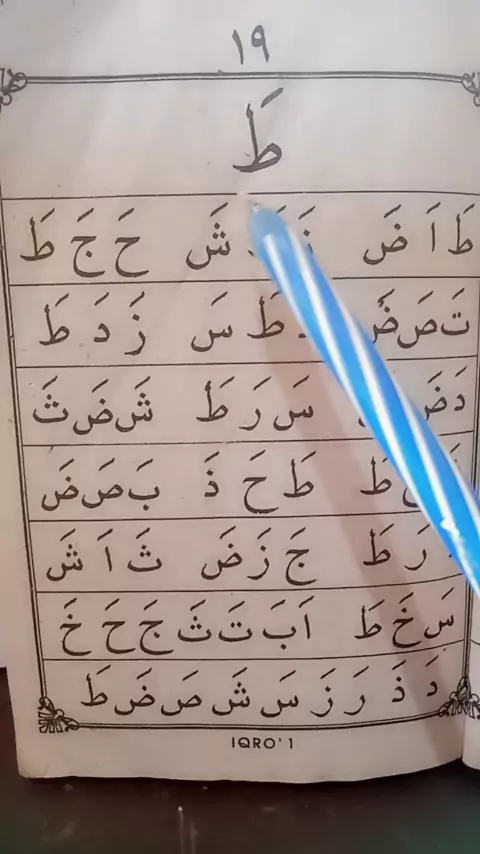 ١٩
طَ
طَ اَ ضَ زَ شَ حَ جَ طَ
تَ صَ ضَ طَ سَ زَ دَ طَ
دَ ضَ سَ رَ طَ شَ ضَ ثَ
طَ طَ حَ ذَ بَ صَ ضَ
رَ طَ جَ زَ ضَ ثَ اَ شَ
سَ خَ طَ اَ بَ تَ ثَ جَ حَ خَ
دَ ذَ رَ زَ سَ شَ صَ ضَ طَ
IQRO' 1